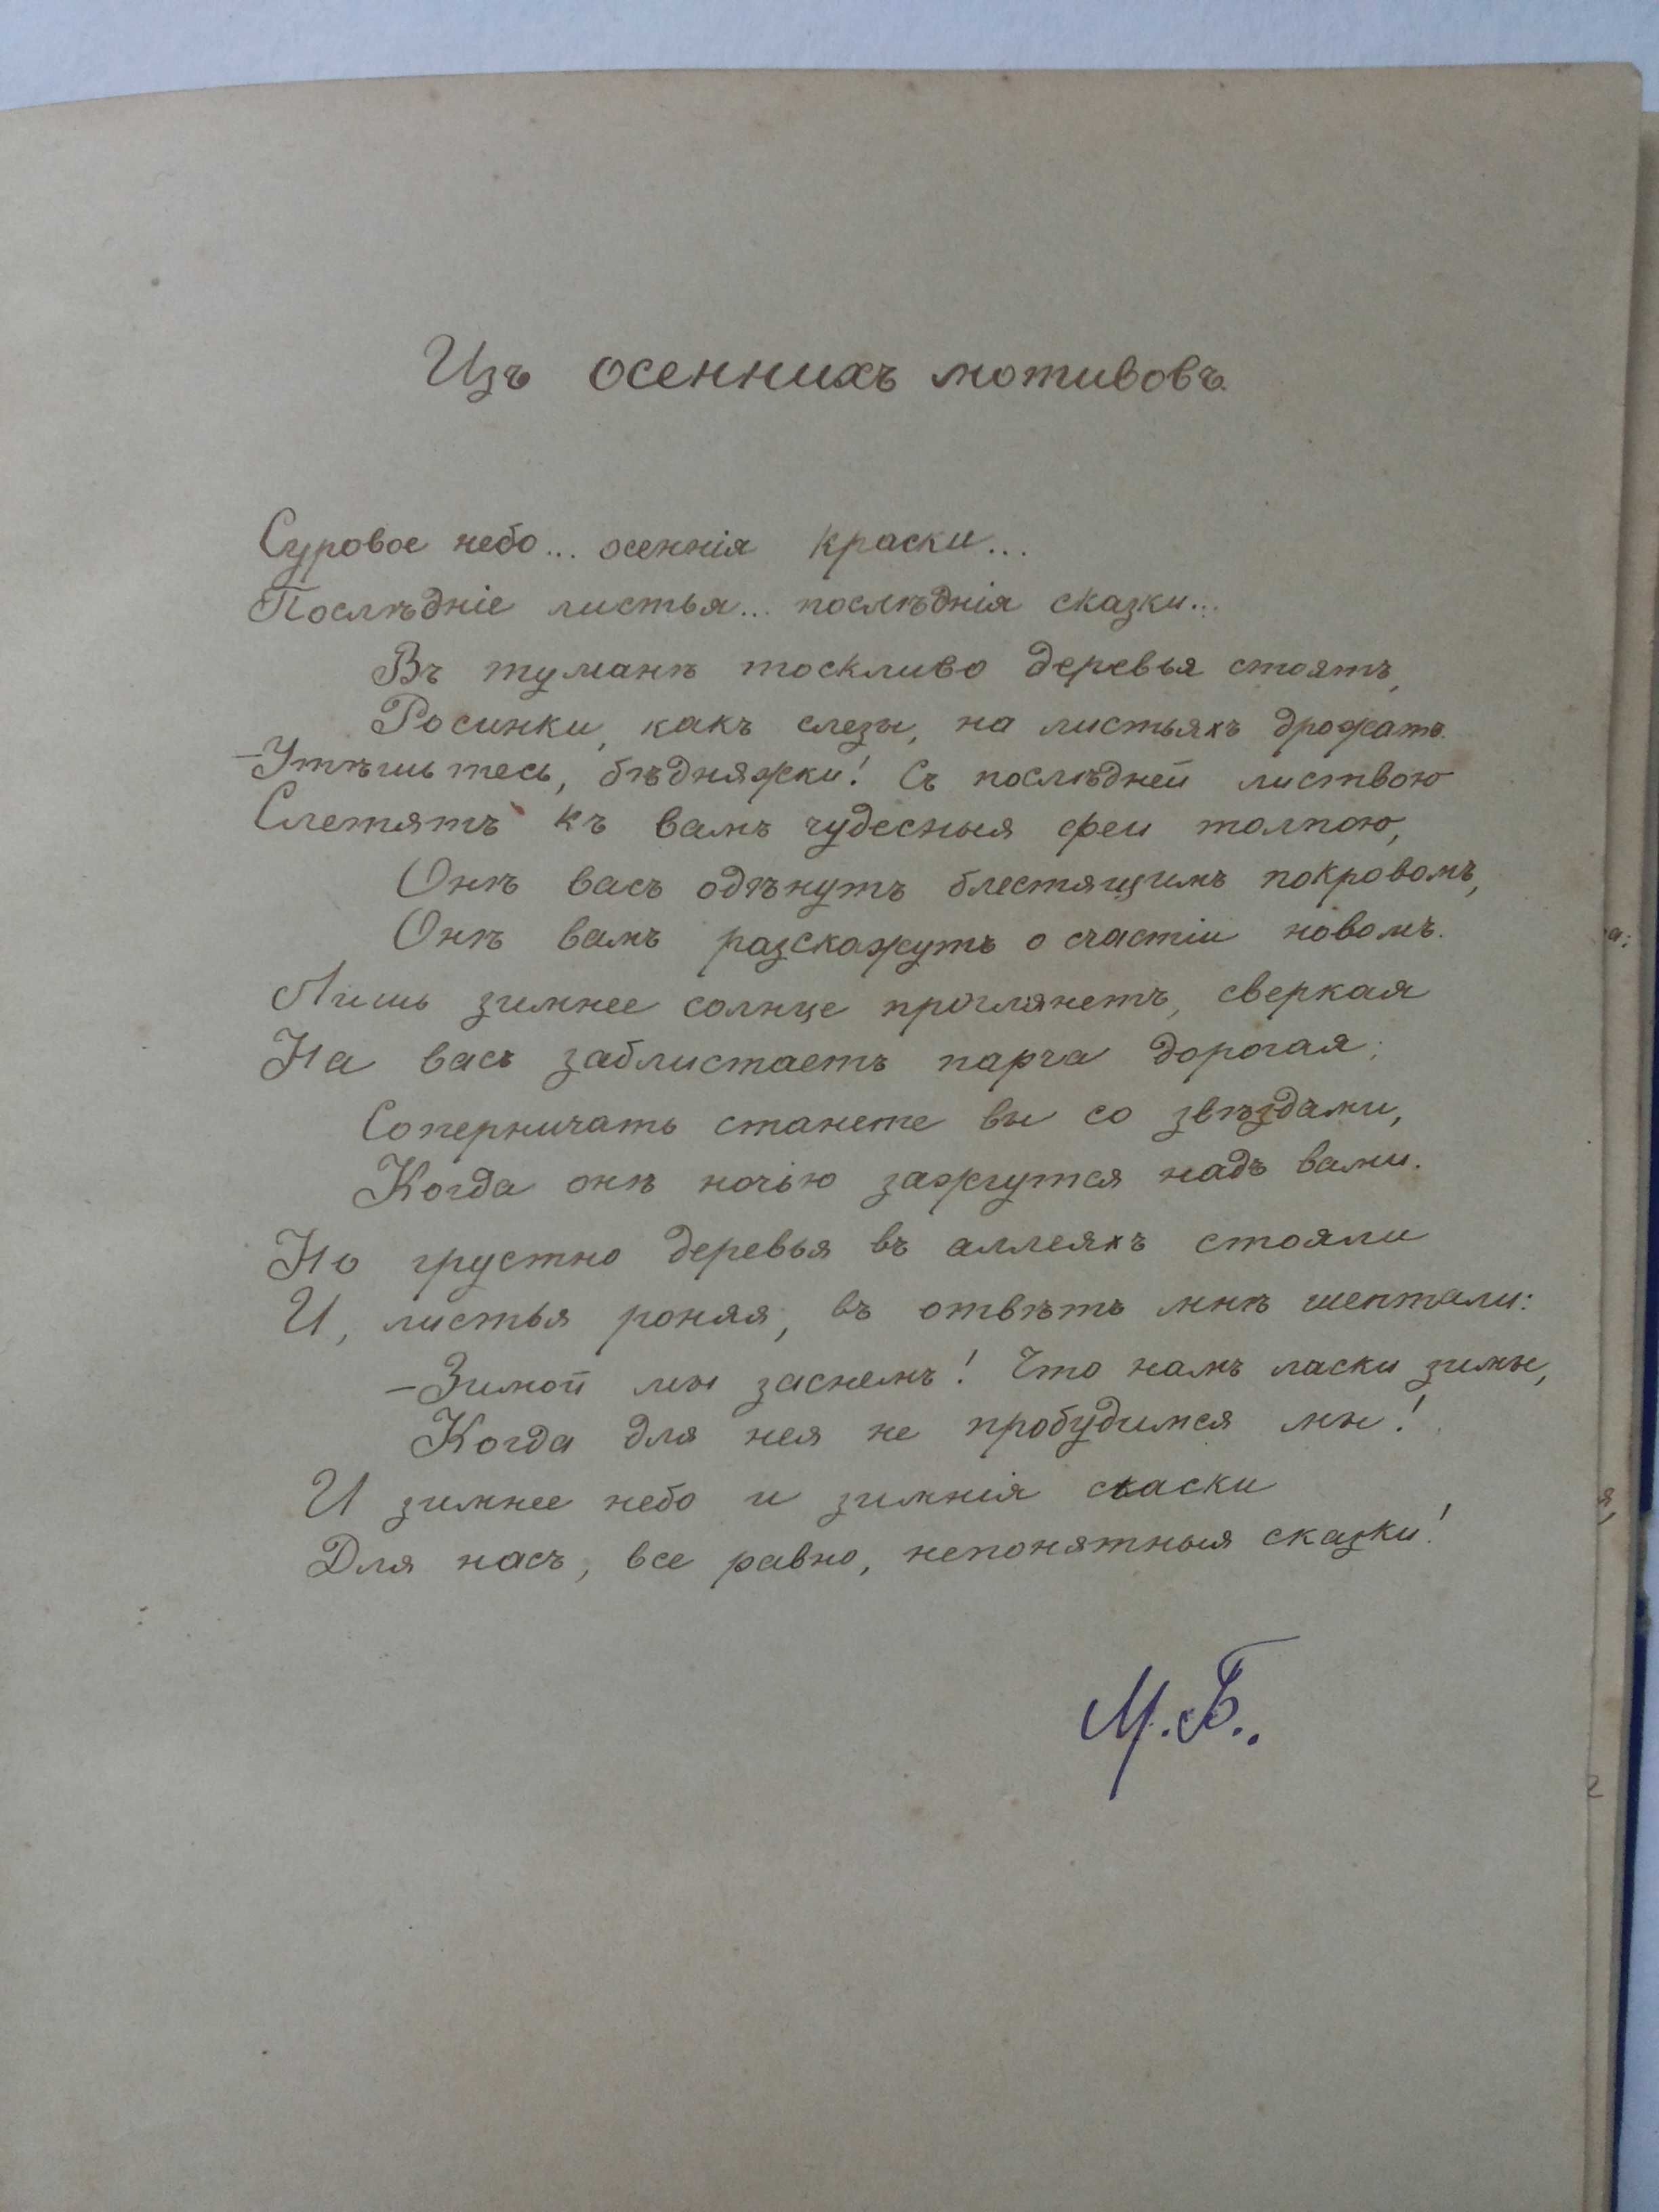 Изъ осеннихъ мотивовъ.
Суровое небо... осеннія краски...
Послѣдніе листья... послѣднія сказки...
Въ туманѣ тоскливо деревья стоятъ,
Росинки, какъ слезы, на листьяхъ дрожатъ.
—Утѣшьтесь, бѣдняжки! Съ послѣдней листвою
Слетятъ къ вамъ чудесныя феи толпою,
Онѣ васъ одѣнутъ блестящимъ покровомъ,
Онѣ вамъ разскажутъ о счастіи новомъ.
Лишь зимнее солнце проглянетъ, сверкая
На васъ заблистаетъ парча дорогая;
Соперничать станете вы со звѣздами,
Когда онѣ ночью зажгутся надъ вами.
Но грустно деревья въ аллеяхъ стояли
И, листья роняя, въ отвѣтъ мнѣ шептали:
—Зимой мы заснемъ! Что намъ ласки зимы,
Когда для нея не пробудимся мы!
И зимнее небо и зимнія ласки
Для насъ, все равно, непонятныя сказки!
М.Б..